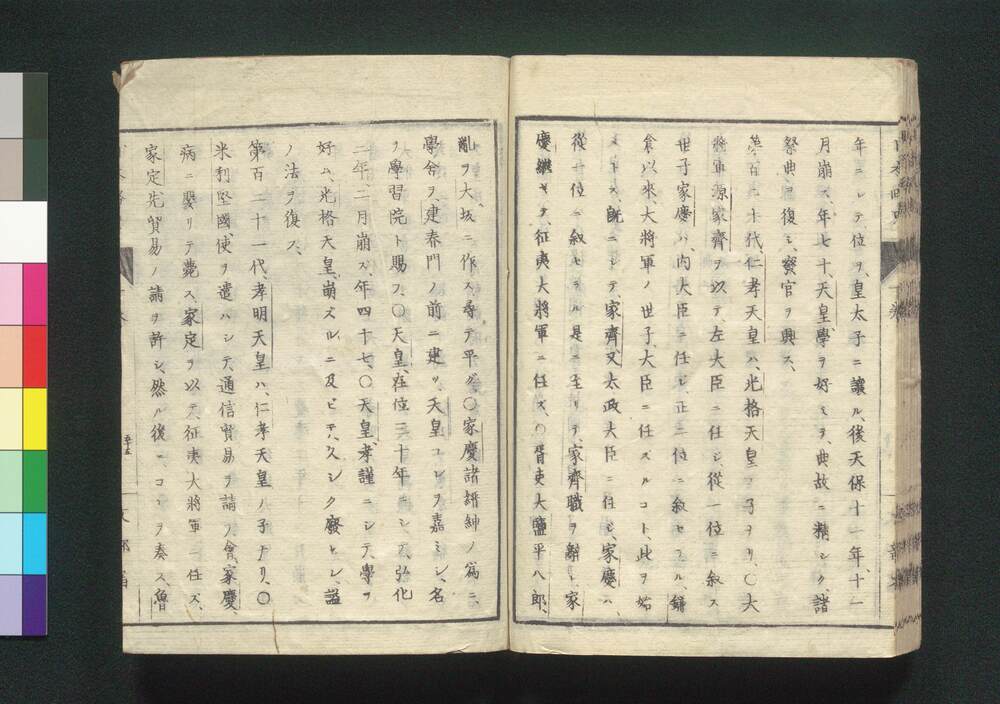 年ニシテ位ヲ、皇太子ニ讓ル、後天保十一年、十一
月崩ス、年七十、天皇學ヲ好ミ、典故ニ精シク、諸
祭典ヲ復シ、廢官ヲ興ス、
第百二十代、仁孝天皇ハ、光格天皇ノ子ナリ、〇大
將軍源家齊ヲ以テ左大臣ニ任シ、從一位ニ叙ス
世子家慶ハ、内大臣ニ任シ、正二位ニ叙セラル、鎌
倉以來大將軍ノ世子大臣ニ任スルコト、此ヲ始
メトス、既ニシテ家齊又太政大臣ニ任シ、家慶ハ
從一位ニ叙セラル是ニ至リテ、家齊職ヲ辭シ家
慶繼キテ、征夷大將軍ニ任ス、〇胥吏大鹽平八郎、
亂ヲ大坂ニ作ス尋テ平グ、〇家慶諸縉紳ノ爲ニ、
學舍ヲ、建春門ノ前ニ建ツ、天皇コレヲ嘉ミシ、名
ヲ學習院ト賜フ、〇天皇、在位三十年ニシテ、弘化
二年、二月崩ス、年四十七、〇天皇孝謹ニシテ、學ヲ
好ム、光格天皇、崩ズルニ及ビテ、久シク廢セシ、謚
ノ法ヲ復ス、
第百二十一代、孝明天皇ハ、仁孝天皇ノ子ナリ、〇
米利堅國、使ヲ遣ハシテ、通信貿易ヲ請フ、會家慶、
病ニ嬰リテ薨ス、家定ヲ以テ、征夷大將軍ニ任ズ、
家定先貿易ノ請ヲ許シ、然ル後ニ、コレヲ奏ス、魯
五十五
文部省